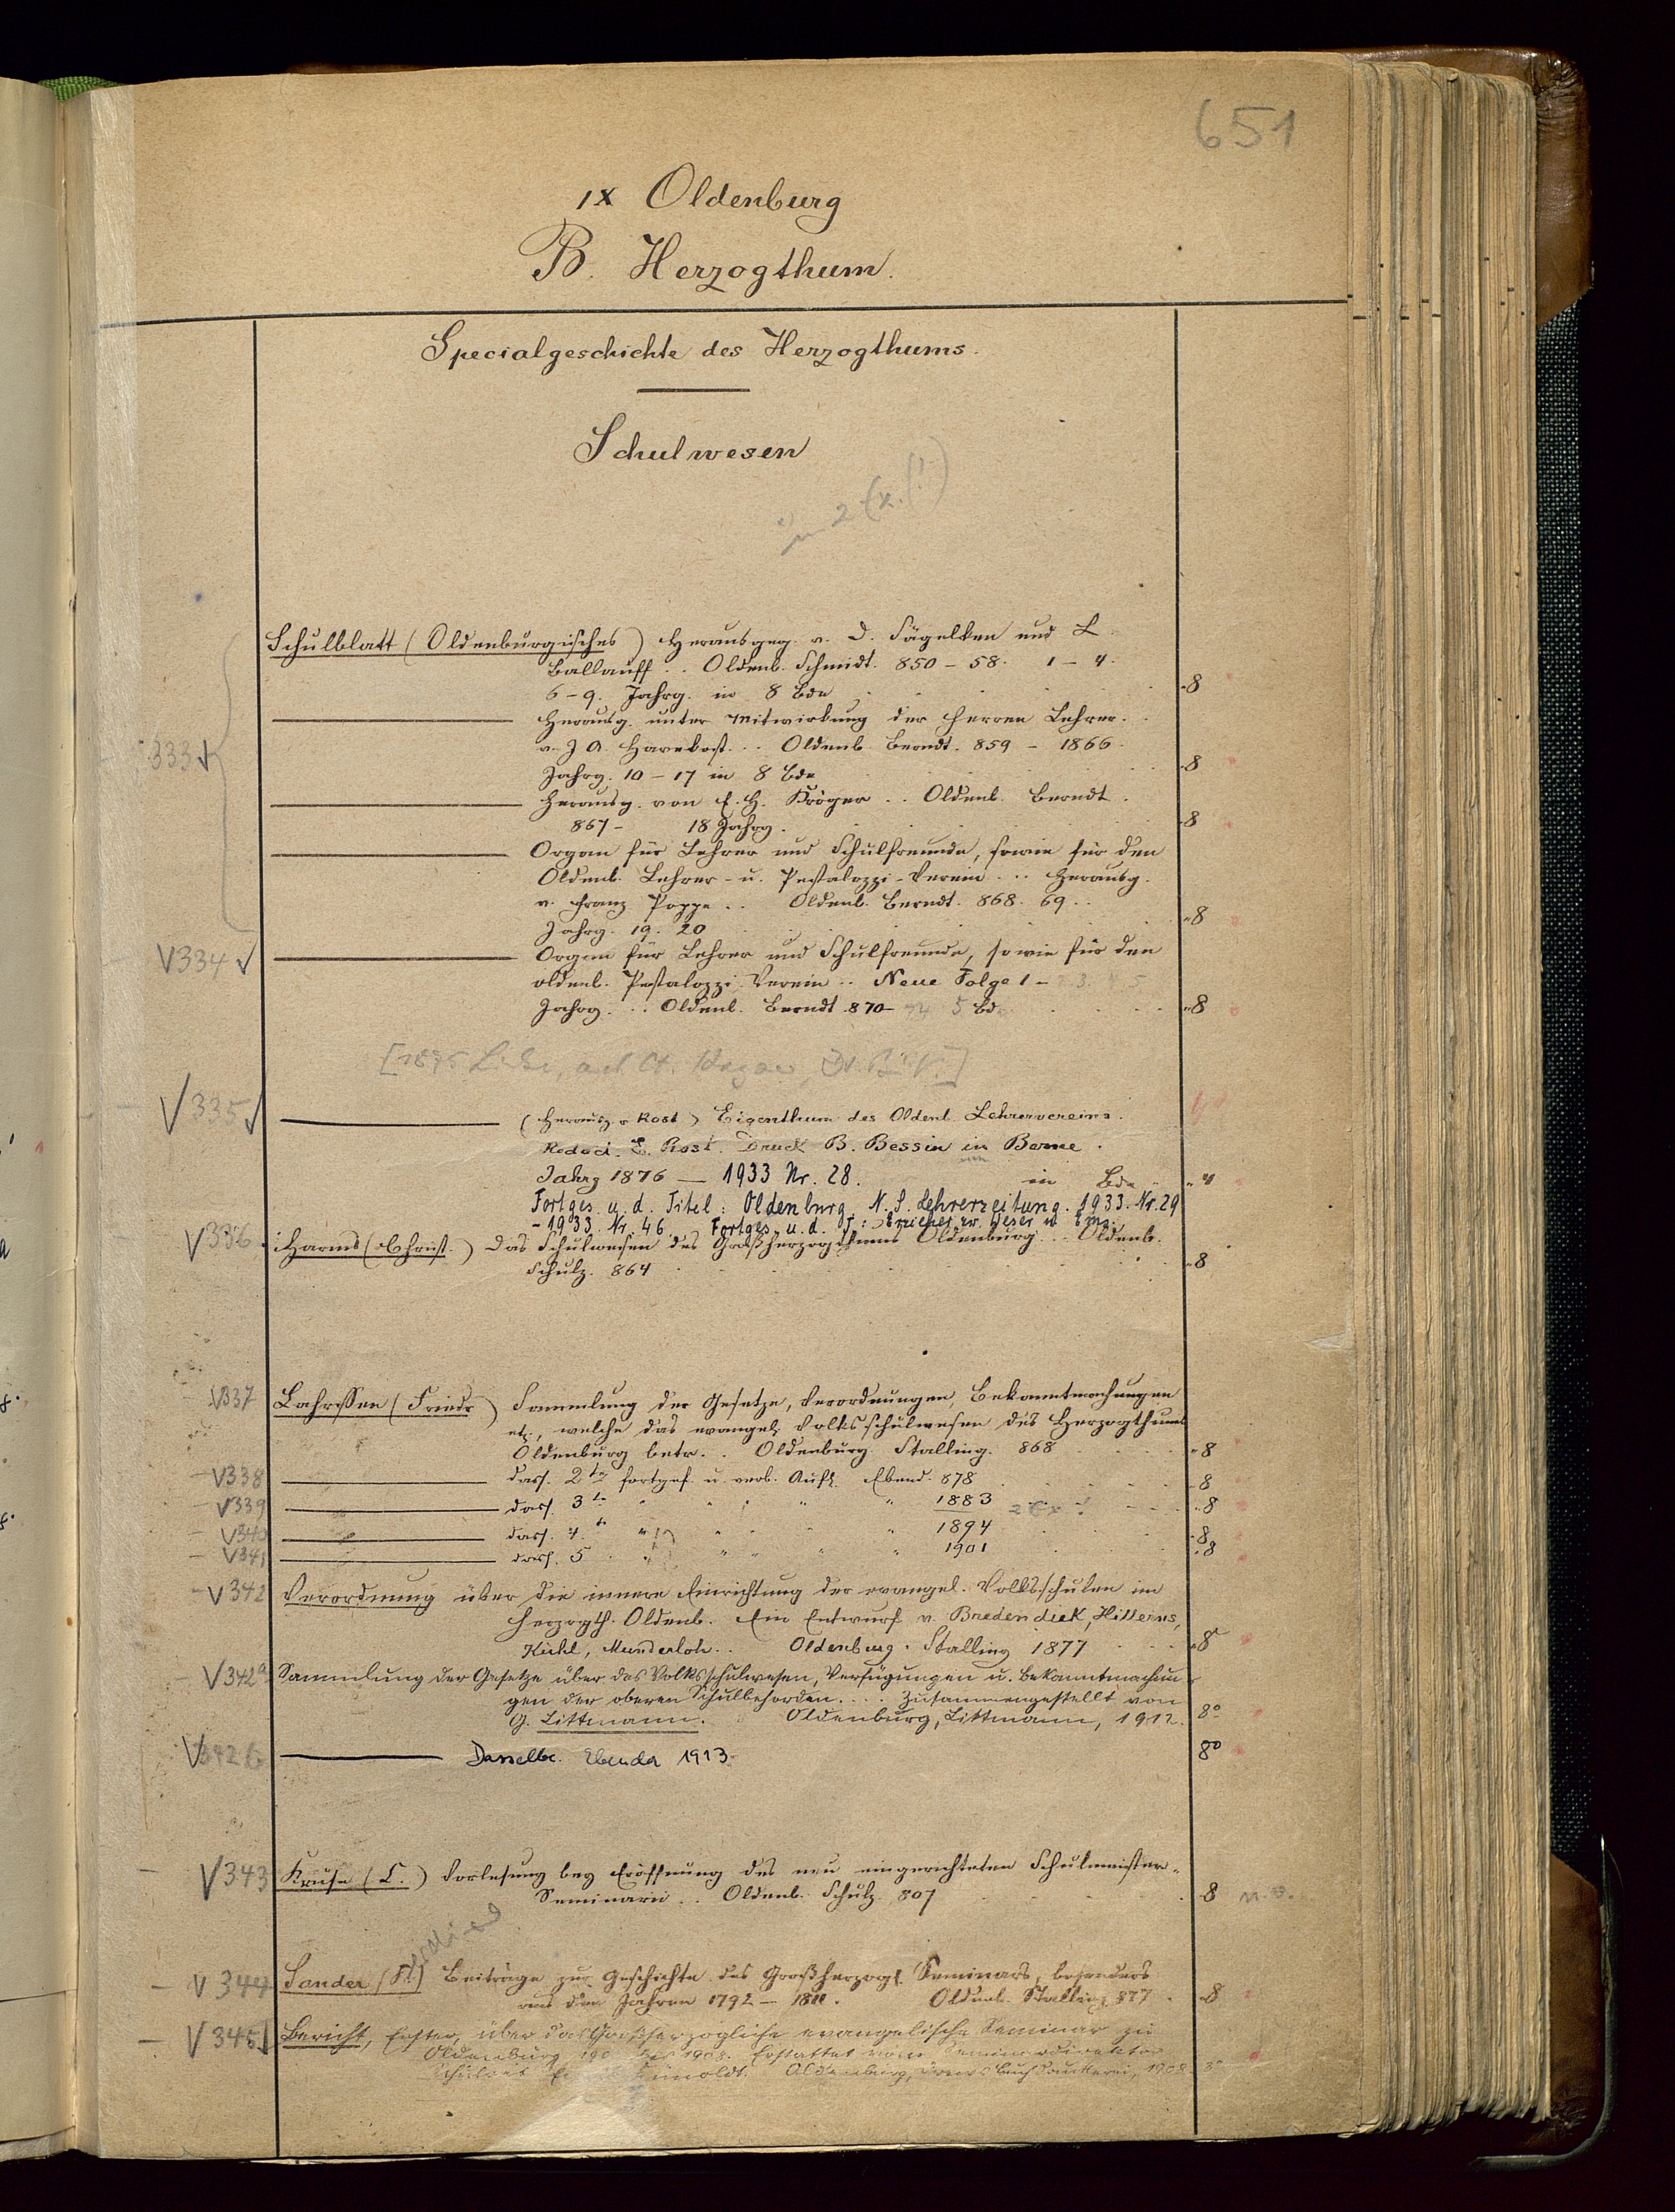 651
IX Oldenburg
B. Herzogthum.
Specialgeschichte des Herzogthums.
Schulwesen
Schulblatt (Oldenburgisches) Herausgeg. v. D. Fägelken und L.
Ballauff .. Oldenb. Schmidt. 850-58. 1-4.
6-9. Jahrg. in 8 Bde 8
Herausg. unter Mitwirkung der Herren Lehrer.
333 v. J. A. Harekost... Oldenb. Berndt. 859 - 1866.
Jahrg. 10-17 in 8 Bde 8
Herausg. von E. H. Kröger .. Oldenb. Berndt.
867- 18 Jahrg. 8
Organ für Lehrer und Schulfreunde, sowie für den
Oldenb. Lehrer- u. Pestalozzi-Verein ... Herausg.
v. Franz Poppe .. Oldenb. Berndt. 868. 69..
Jahrg. 19. 20 8
V334 Organ für Lehrer und Schulfreunde, sowie für den
oldenb. Pestalozzi Verein .. Neue Folge 1-
Jahrg. .. Oldenb. Berndt 870- 5 Bd 8
V335 (Herausg. v Rost) Eigenthum des Oldenb. Lehrervereins.
Redact. E. Rost. Druck B. Bessin in Berne.
Jahrg 1876 — 1933 Nr. 28. in Bde 4
Fortges. u. d. Titel: Oldenburg. N. S. Lehrerzeitung. 1933. Nr. 29
- 1933. Nr. 46. Fortges. u. d. T: Erzieher zw. Weser u. Ems.
V336. Harms (Christ.) Das Schulwesen des Großherzogthums Oldenburg... Oldenb.
Schulz. 864 8
V337 Lahrssen (Friedr) Sammlung der Gesetze, Verordnungen, Bekanntmachungen
etc., welche das evangel. Volksschulwesen des Herzogthums
Oldenburg betr. .. Oldenburg. Stalling. 868 8
V338 dass. 2te fortges. u. verb. Aufl. Ebend. 878 8
V339 dass. 3te " " " " 1883 2 Ex! 8
V340 dass. 4. te " " " " 1894 8
V341 dass. 5. " " " " 1901 8
V342 Verordnung über die innere Einrichtung der evangel. Volksschulen im
Herzogth. Oldenb. Ein Entwurf v. Bredendiek, Hillerns,
Kühl, Munderloh .. Oldenburg. Stalling 1877 8
V342a Sammlung der Gesetze über das Volksschulwesen, Verfügungen u. Bekanntmachun-
gen der oberen Schulbehörden.... Zusammengestellt von
G. Littmann. Oldenburg, Littmann, 1912. 8°
V342b Dasselbe. Ebenda 1913. 8°
V343 Kruse (C.) Vorlesung bey Eröffnung des neu eingerichteten Schulmeister-
Seminars .. Oldenb. Schulz. 807 8
V344 Sander (F.) Beiträge zur Geschichte des Großherzogl. Seminars, besonders
aus den Jahren 1792 - 1811. Oldenb. Stalling 877. 8
V345 Bericht, Erster, über das Großherzogliche evangelische Seminar zu
Oldenburg 1908. Erstattet vom Seminardirektor
Schulrat Künoldt. Oldenburg, Buchdruckerei, 1908. 8°